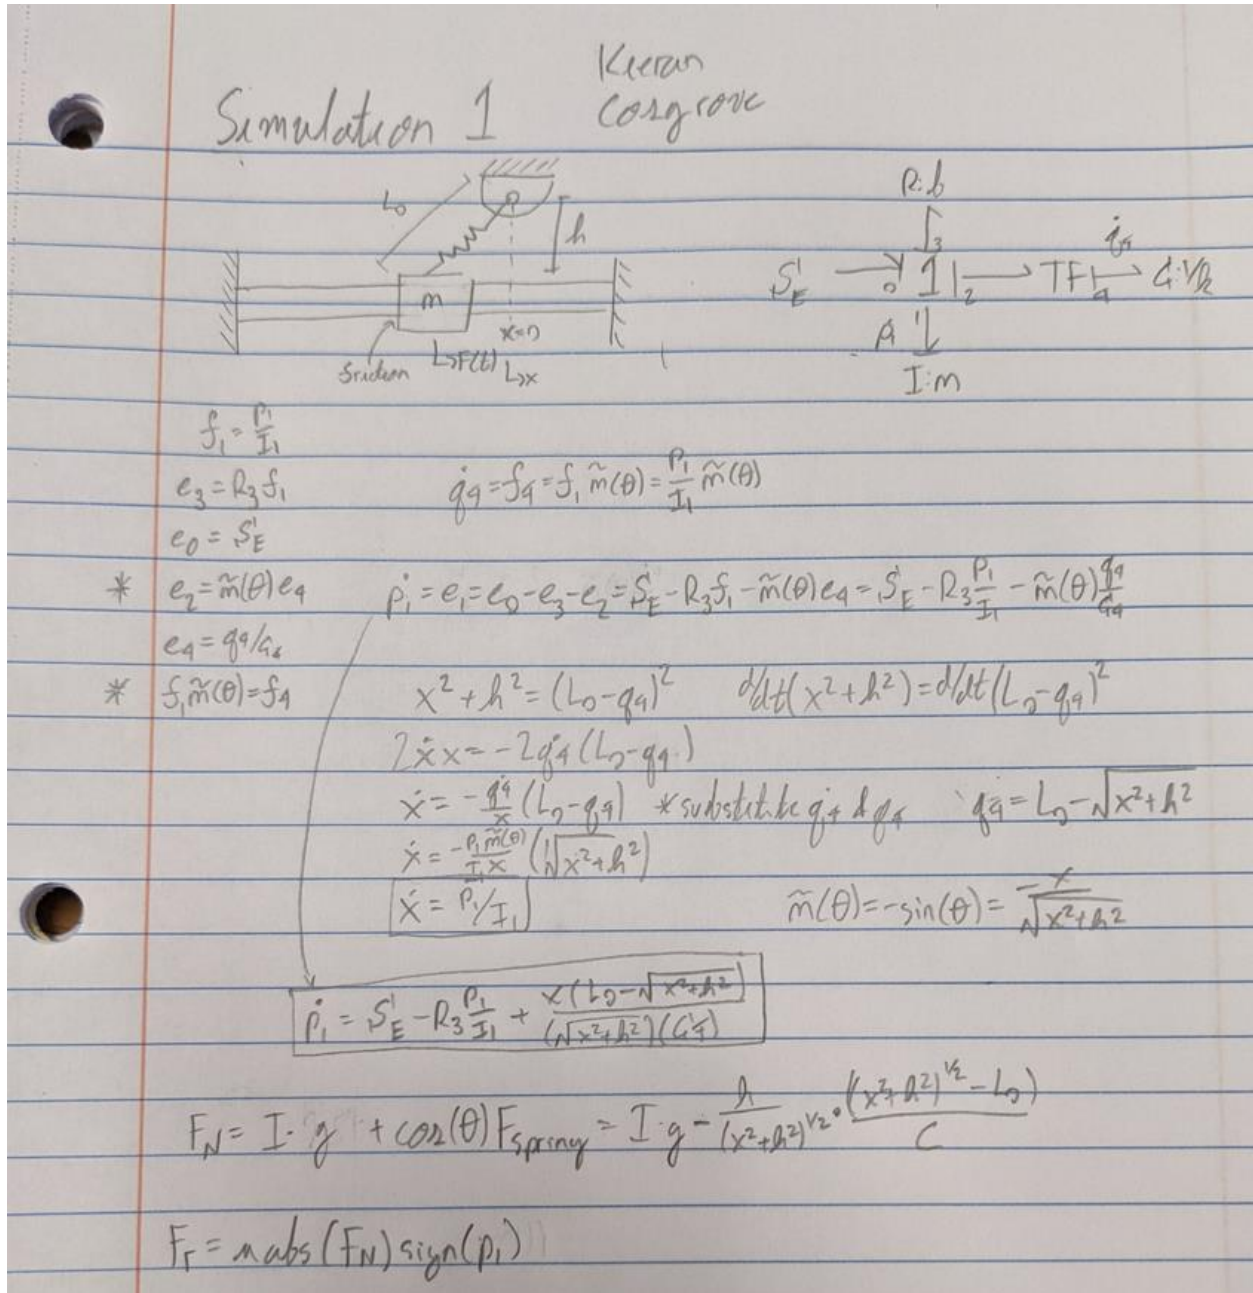 Kieran
Simulation 1 Cosgrove
L₀
h
m
x=0
friction
↳F(t)
↳x
R:b
3
S_E 0 1 2 TF 4 q̇₄ C:1/k
p₁ 1
I:m
f₁ = p₁/I₁
e₃ = R₃f₁ q̇₄ = f₄ = f₁ m̃(θ) = p₁/I₁ m̃(θ)
e₀ = S_E
* e₂ = m̃(θ)e₄ ṗ₁ = e₁ = e₀ - e₃ - e₂ = S_E - R₃f₁ - m̃(θ)e₄ = S_E - R₃ p₁/I₁ - m̃(θ) q₄/C₄
e₄ = q₄/C₄
* f₁m̃(θ) = f₄ x² + h² = (L₀ - q₄)² d/dt(x² + h²) = d/dt(L₀ - q₄)²
2ẋx = -2q̇₄(L₀ - q₄)
ẋ = -q̇₄/x (L₀ - q₄) *substitute q̇₄ & q₄ q₄ = L₀ - √(x² + h²)
ẋ = -p₁m̃(θ)/(I₁x) (√(x² + h²))
ẋ = p₁/I₁ m̃(θ) = -sin(θ) = -x/√(x² + h²)
ṗ₁ = S_E - R₃ p₁/I₁ + x(L₀ - √(x² + h²))/((√(x² + h²))(C₄))
F_N = I·g + cos(θ)F_spring = I·g - h/(x² + h²)^1/2 · ((x² + h²)^1/2 - L₀)/C
F_r = μ abs(F_N) sign(p₁)